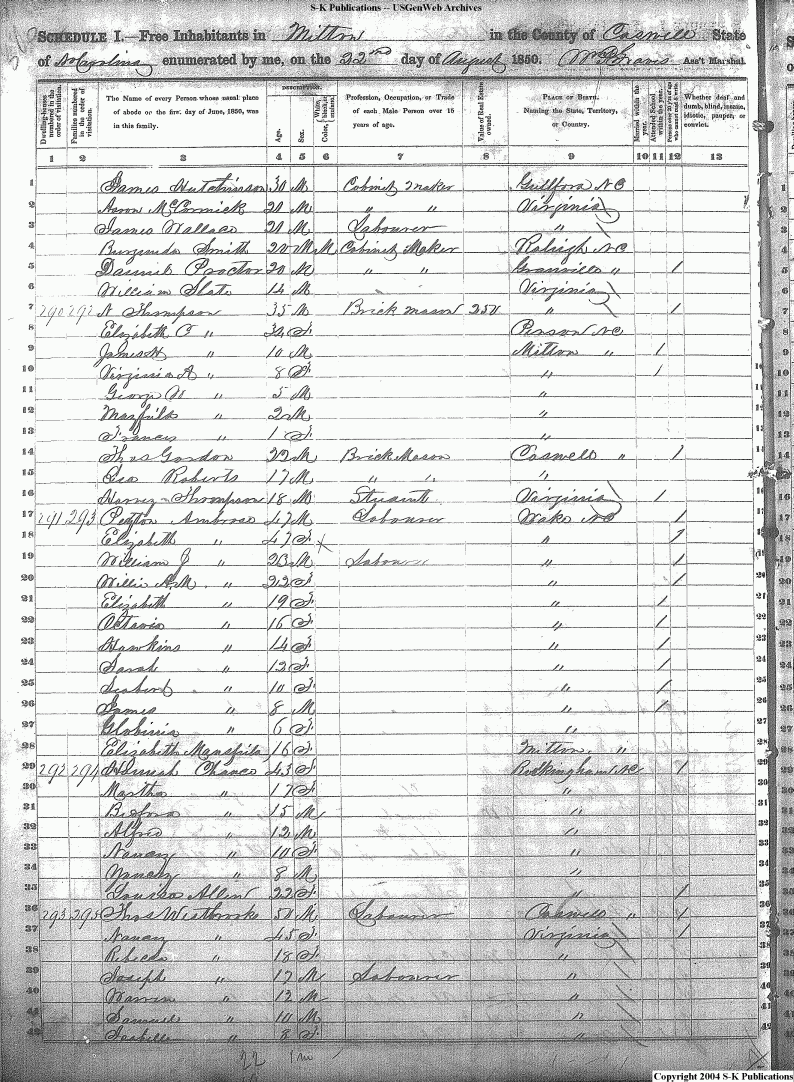 S-K Publications -- USGenWeb Archives
SCHEDULE I.—Free Inhabitants in Milton in the County of Caswell State
of No Carolina enumerated by me, on the 22nd day of August 1850. Ass't Marshal.
Dwelling-houses numbered in the order of visitation.
Families numbered in the order of visitation.
The Name of every Person whose usual place of abode on the first day of June, 1850, was in this family.
DESCRIPTION.
Age.
Sex.
Color, White, black, or mulatto.
Profession, Occupation, or Trade of each Male Person over 15 years of age.
Value of Real Estate owned.
PLACE OF BIRTH. Naming the State, Territory, or Country.
Married within the year.
Attended School within the year.
Persons over 20 y'rs of age who cannot read & write.
Whether deaf and dumb, blind, insane, idiotic, pauper, or convict.
1 2 3 4 5 6 7 8 9 10 11 12 13
1 James Hutchinson 30 M Cabinet Maker Guilford NC 1
2 Aaron McCormick 20 M " " Virginia 2
3 James Wallace 20 M Labourer " 3
4 Smith 20 M M Cabinet Maker Raleigh NC 4
5 Daniel Proctor 20 M " " Granville " / 5
6 William Slate 14 M Virginia 6
7 290 292 N Thompson 35 M Brick mason 250 " / 7
8 Elizabeth C " F Person NC 8
9 James H " 10 M Milton " / 9
10 Virginia A " 8 F " / 10
11 George W " 5 M " 11
12 " 2 M " 12
13 Francis " 1 F " 13
14 Thos Gordon 22 M Brick Mason Caswell " / 14
15 Geo Roberts 17 M " " " 15
16 Thompson 18 M Student Virginia / 16
17 291 293 Peyton Ambrose 47 M Labourer Wake NC / 17
18 Elizabeth " 47 F " / 18
19 William J " 23 M Labourer " / 19
20 Willie A.M. " 22 F " / 20
21 Elizabeth " 19 F " / 21
22 Octavia " 16 F " / 22
23 Hawkins " 14 F " / 23
24 Sarah " 12 F " / 24
25 " 10 F " / 25
26 James " 8 M " / 26
27 " 6 F " 27
28 Elizabeth 16 F Milton " 28
29 292 294 Chance 43 F Rockingham NC / 29
30 Martha " 17 F " 30
31 " 15 M " 31
32 Alfred " 12 M " 32
33 Nancy " 10 F " 33
34 " 8 M " 34
35 Louisa Allen 22 F " / 35
36 293 295 Thos Westbrooke 50 M Labourer Caswell " / 36
37 Nancy " 45 F Virginia / 37
38 Rebecca " 18 F " 38
39 Joseph " 17 M Labourer " 39
40 Warren " 12 M " 40
41 Samuel " 10 M " 41
42 Isabella " 8 F " 42
22
Copyright 2004 S-K Publications